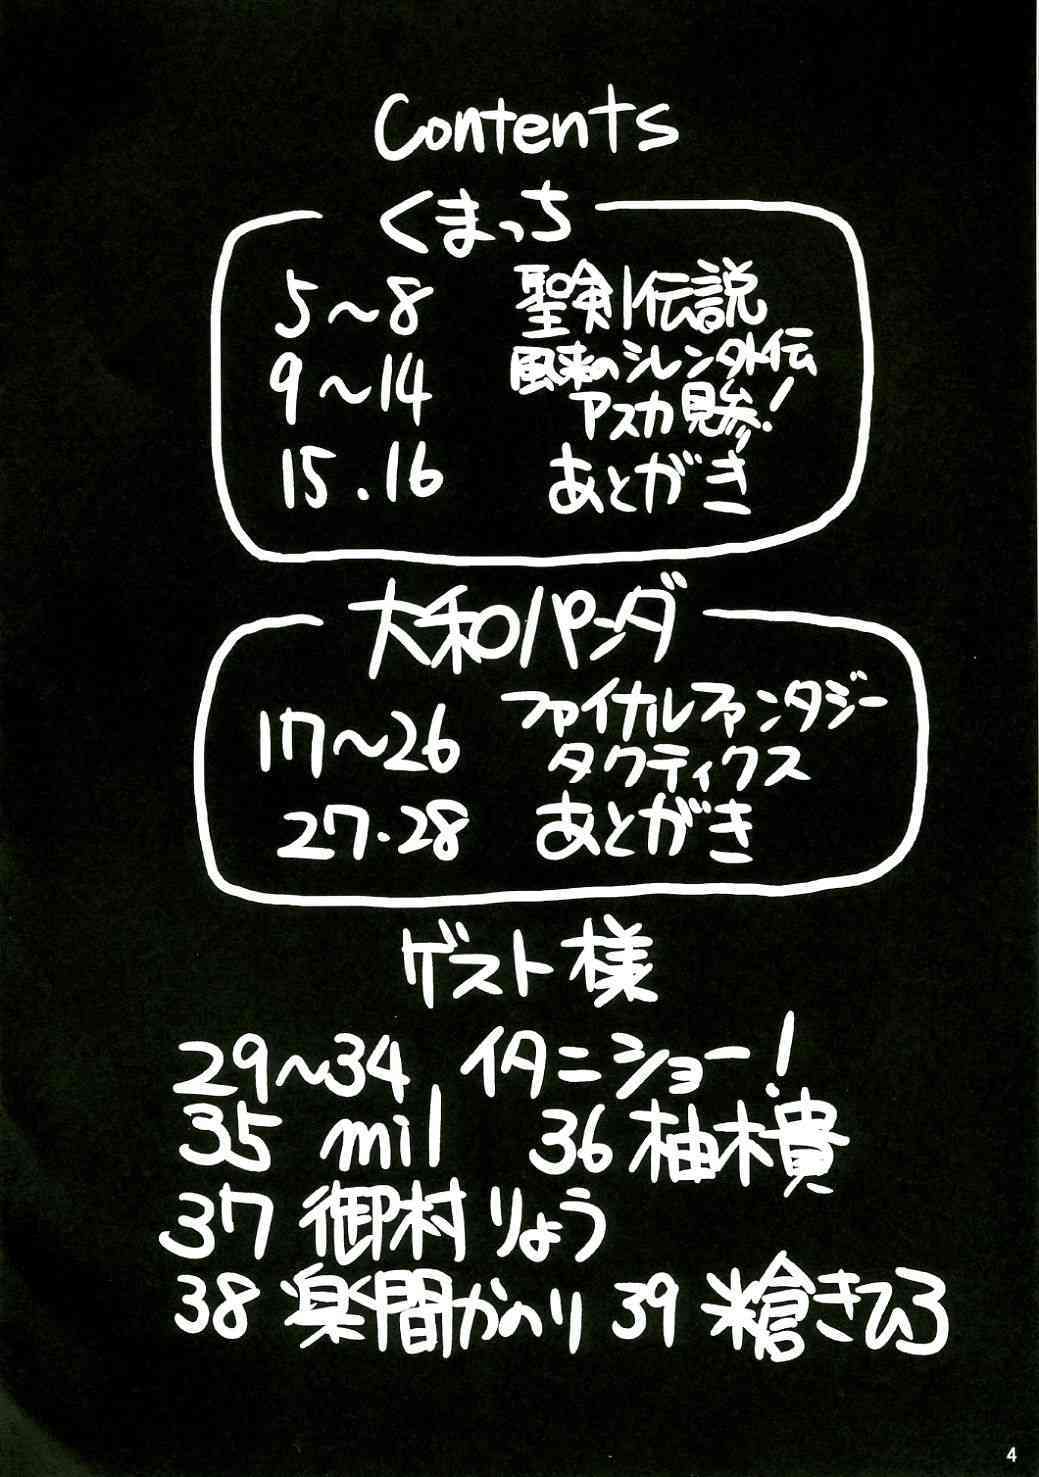 Contents
くまっち
5~8 聖剣伝説
9~14 風来のシレン外伝
アスカ見参!
15.16 あとがき
大和パンダ
17~26 ファイナルファンタジー
タクティクス
27.28 あとがき
ゲスト様
29~34 イタニショー!
35 mil 36 柚木貴
37 御村りょう
38 楽間かのり 39 米倉きひろ
4